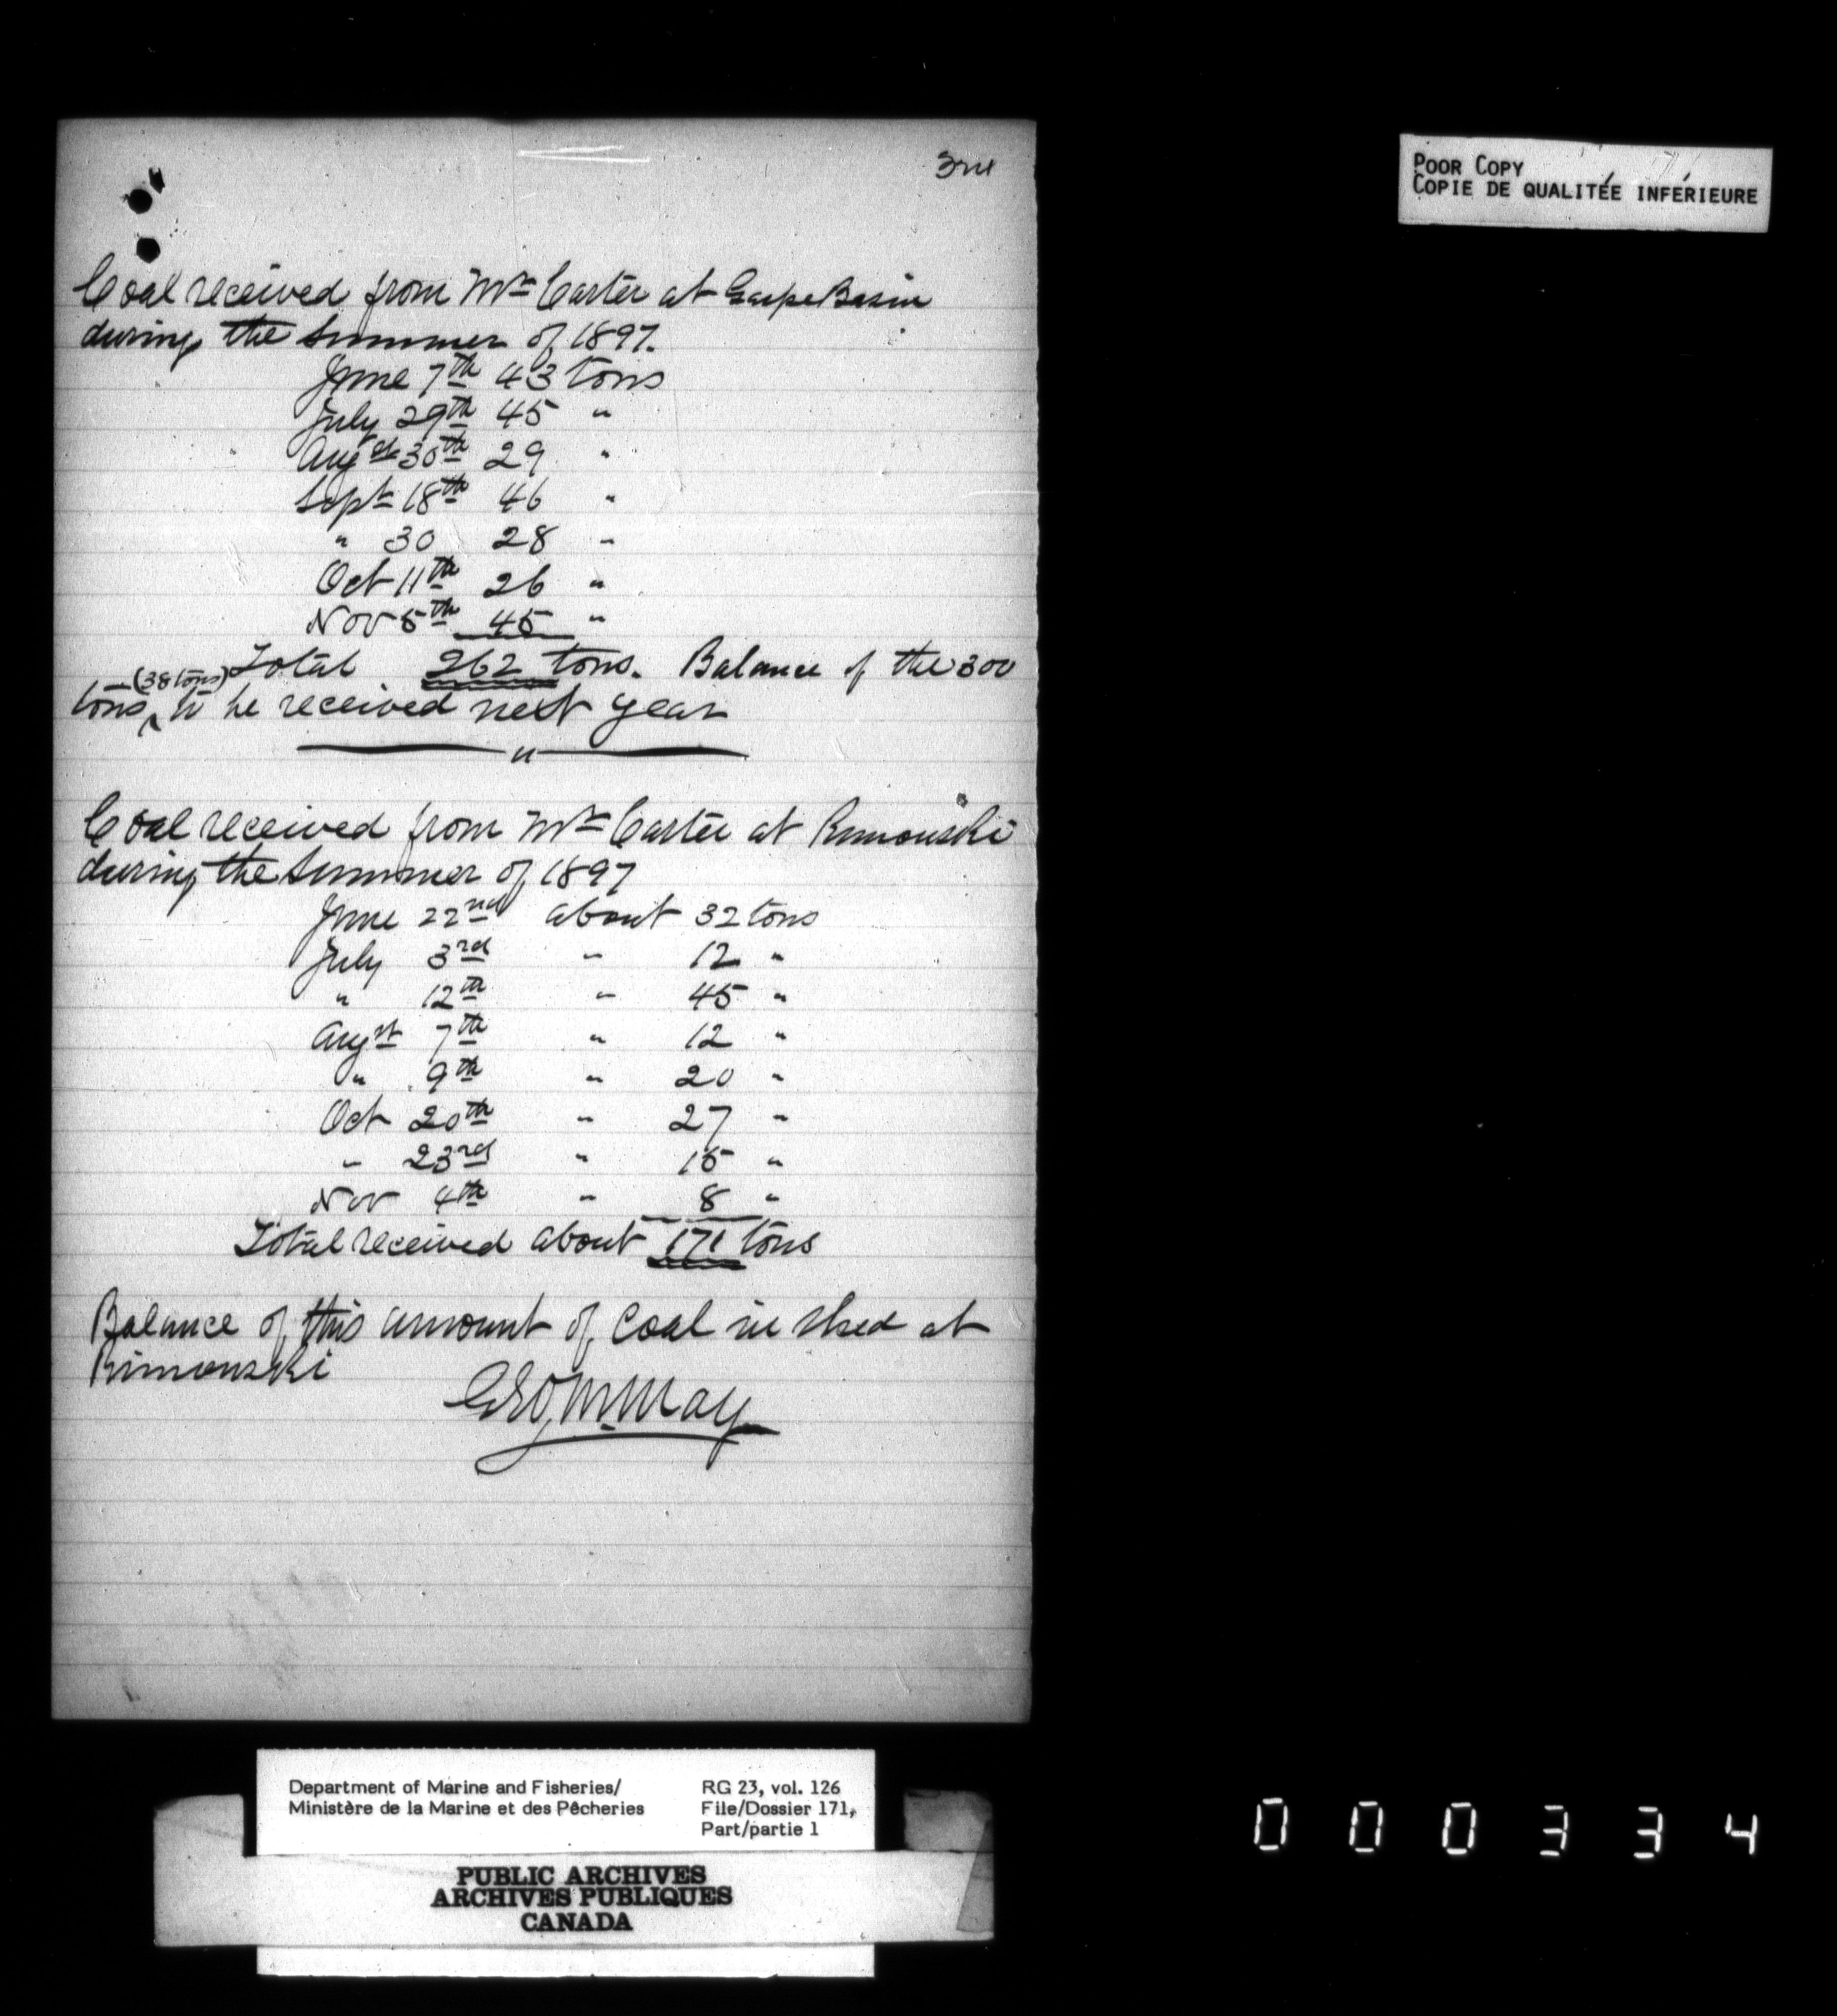 3rd
POOR COPY
COPIE DE QUALITÉE INFÉRIEURE
Coal received from Mr Carter at Gaspe Basin
during the Summer of 1897.
June 7th 43 tons
July 29th 45 "
Augst 30th 29 "
Sept 18th 46 "
" 30 28 "
Oct 11th 26 "
Nov 5th 45 "
Total 262 tons. Balance of the 300
tons (38 tons) to be received next year
"
Coal received from Mr Carter at Rimouski
during the Summer of 1897
June 22nd about 32 tons
July 3rd " 12 "
" 12th " 45 "
Augst 7th " 12 "
" 9th " 20 "
Oct 20th " 27 "
" 23rd " 15 "
Nov 4th " 8 "
Total received about 171 tons
Balance of this amount of Coal in shed at
Rimouski
Geo. M. May
Department of Marine and Fisheries/
Ministère de la Marine et des Pêcheries
RG 23, vol. 126
File/Dossier 171,
Part/partie 1
PUBLIC ARCHIVES
ARCHIVES PUBLIQUES
CANADA
000334